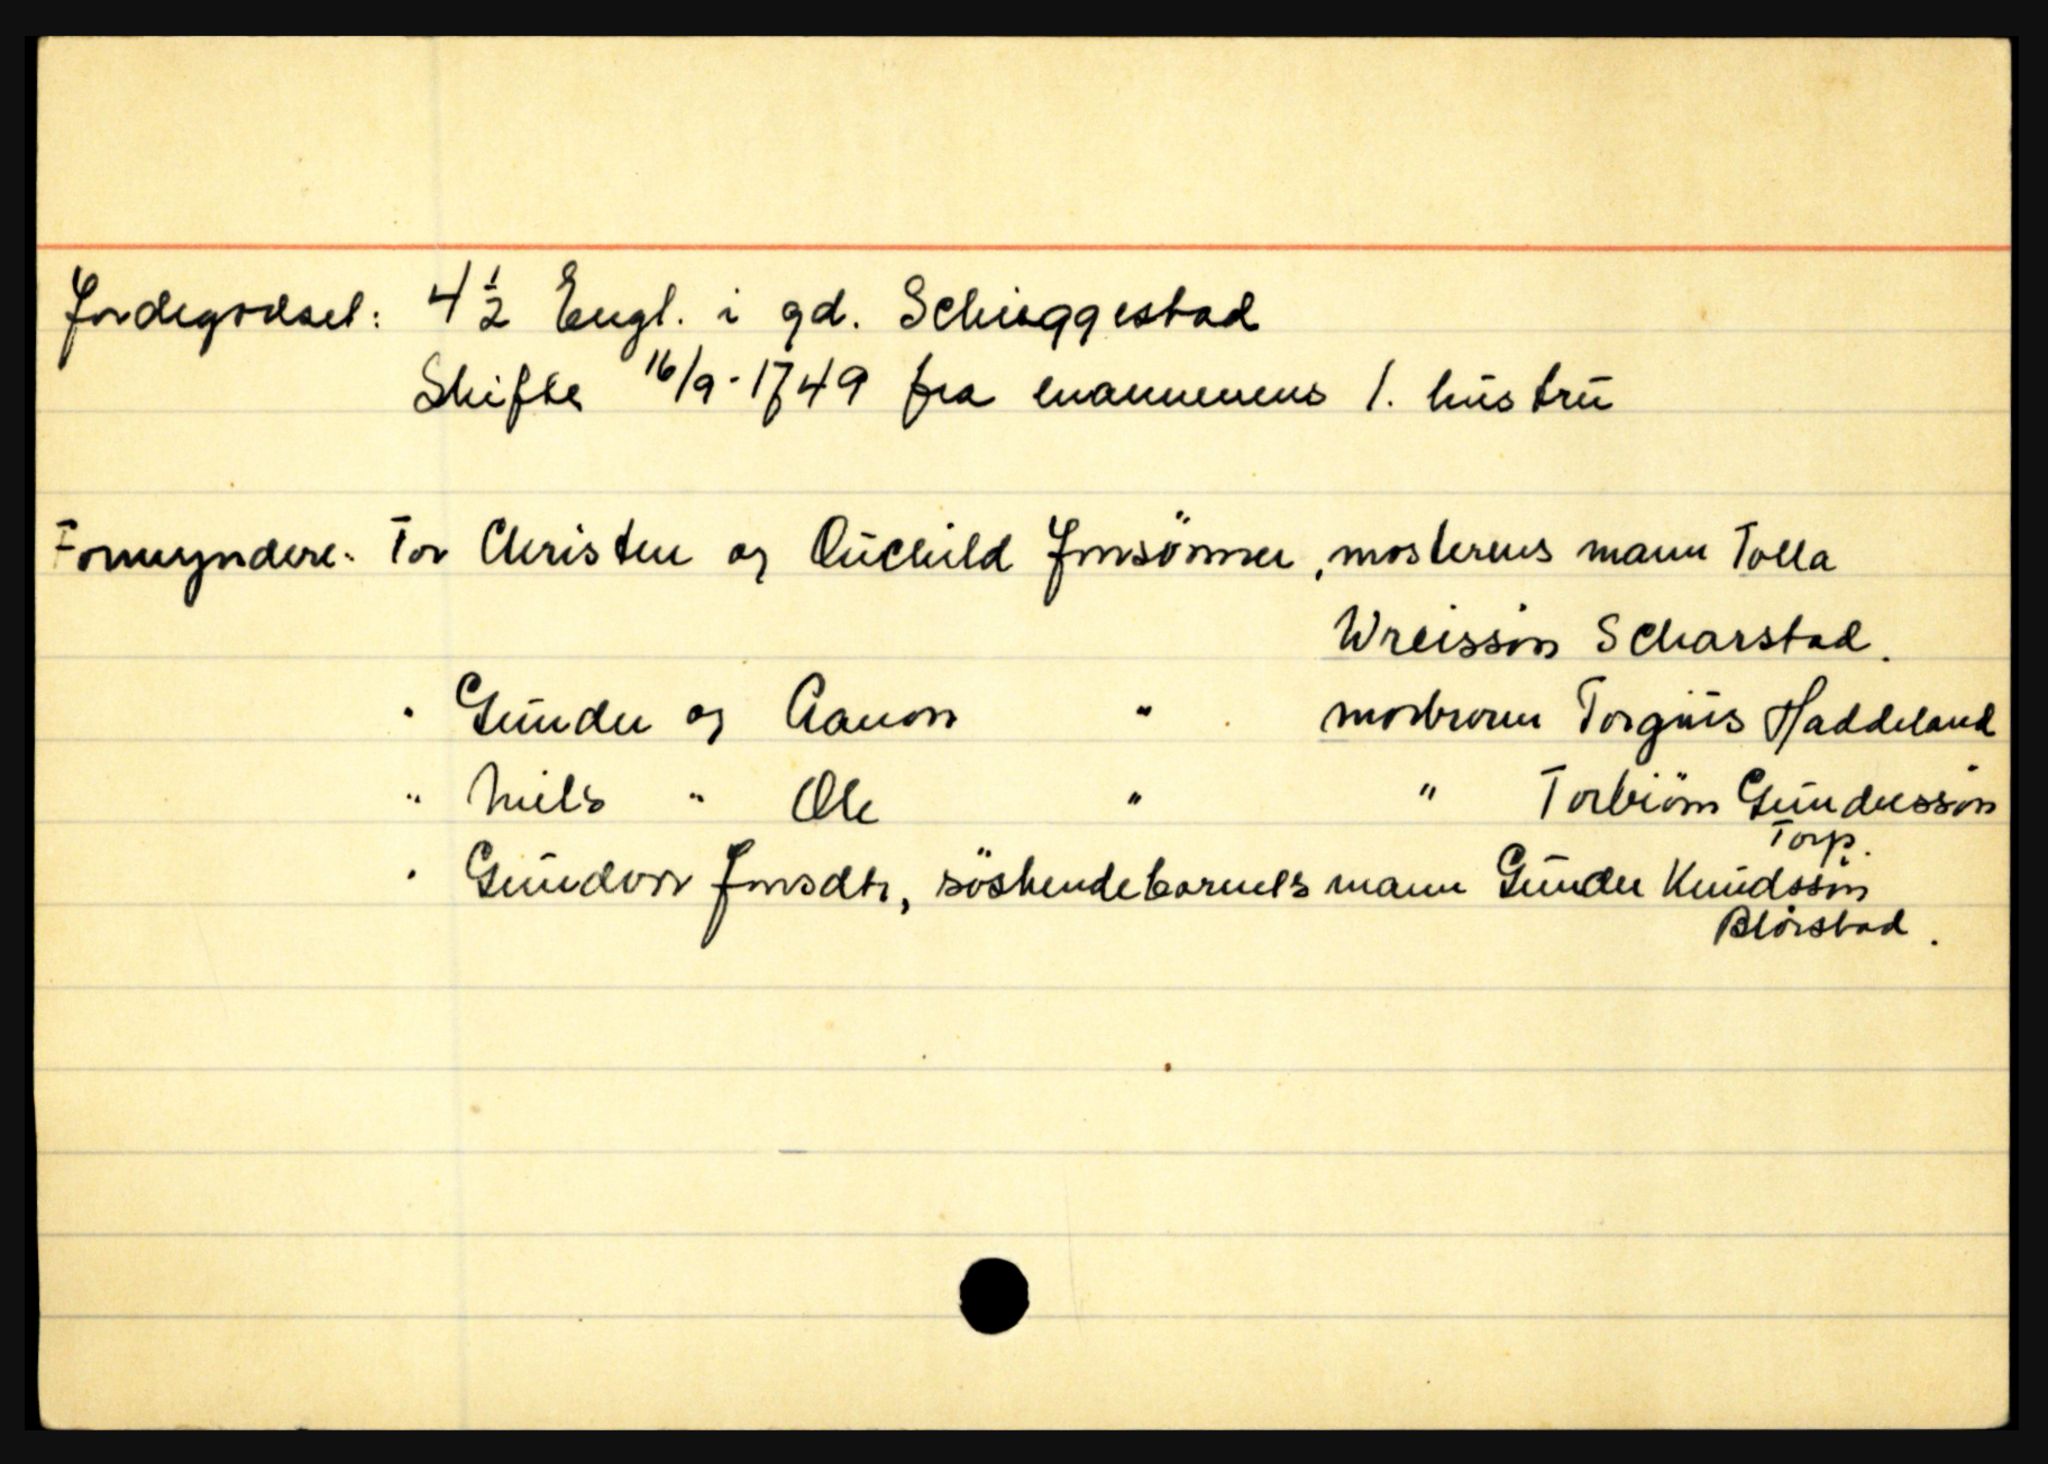 Jordegodset: 4 1/2 Engl. i gd. Schieggestad
Skifte 16/9-1749 fra mannens 1. hustrü
Formyndere: For Christen og Ouchild Jonsönner, mosterens mann Tolla
Wreissön Scharstad.
" Gunder og Aanon " morbroren Torgius Haddeland
" Niels " Ole " " Torbiörn Gundersson
Torp.
" Gundvor Jonsdtr, söskendebarnets mann Gunder Knudssön
Blörstad.